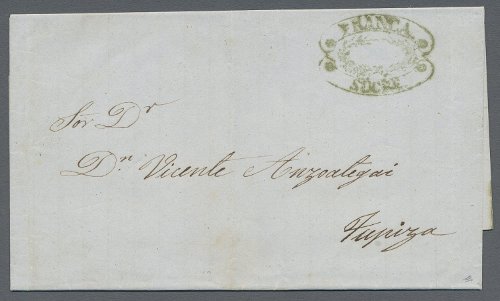 FRANCA
SUCRE
Sor. Dr
Dn. Vicente Anzoategai
Tupiza